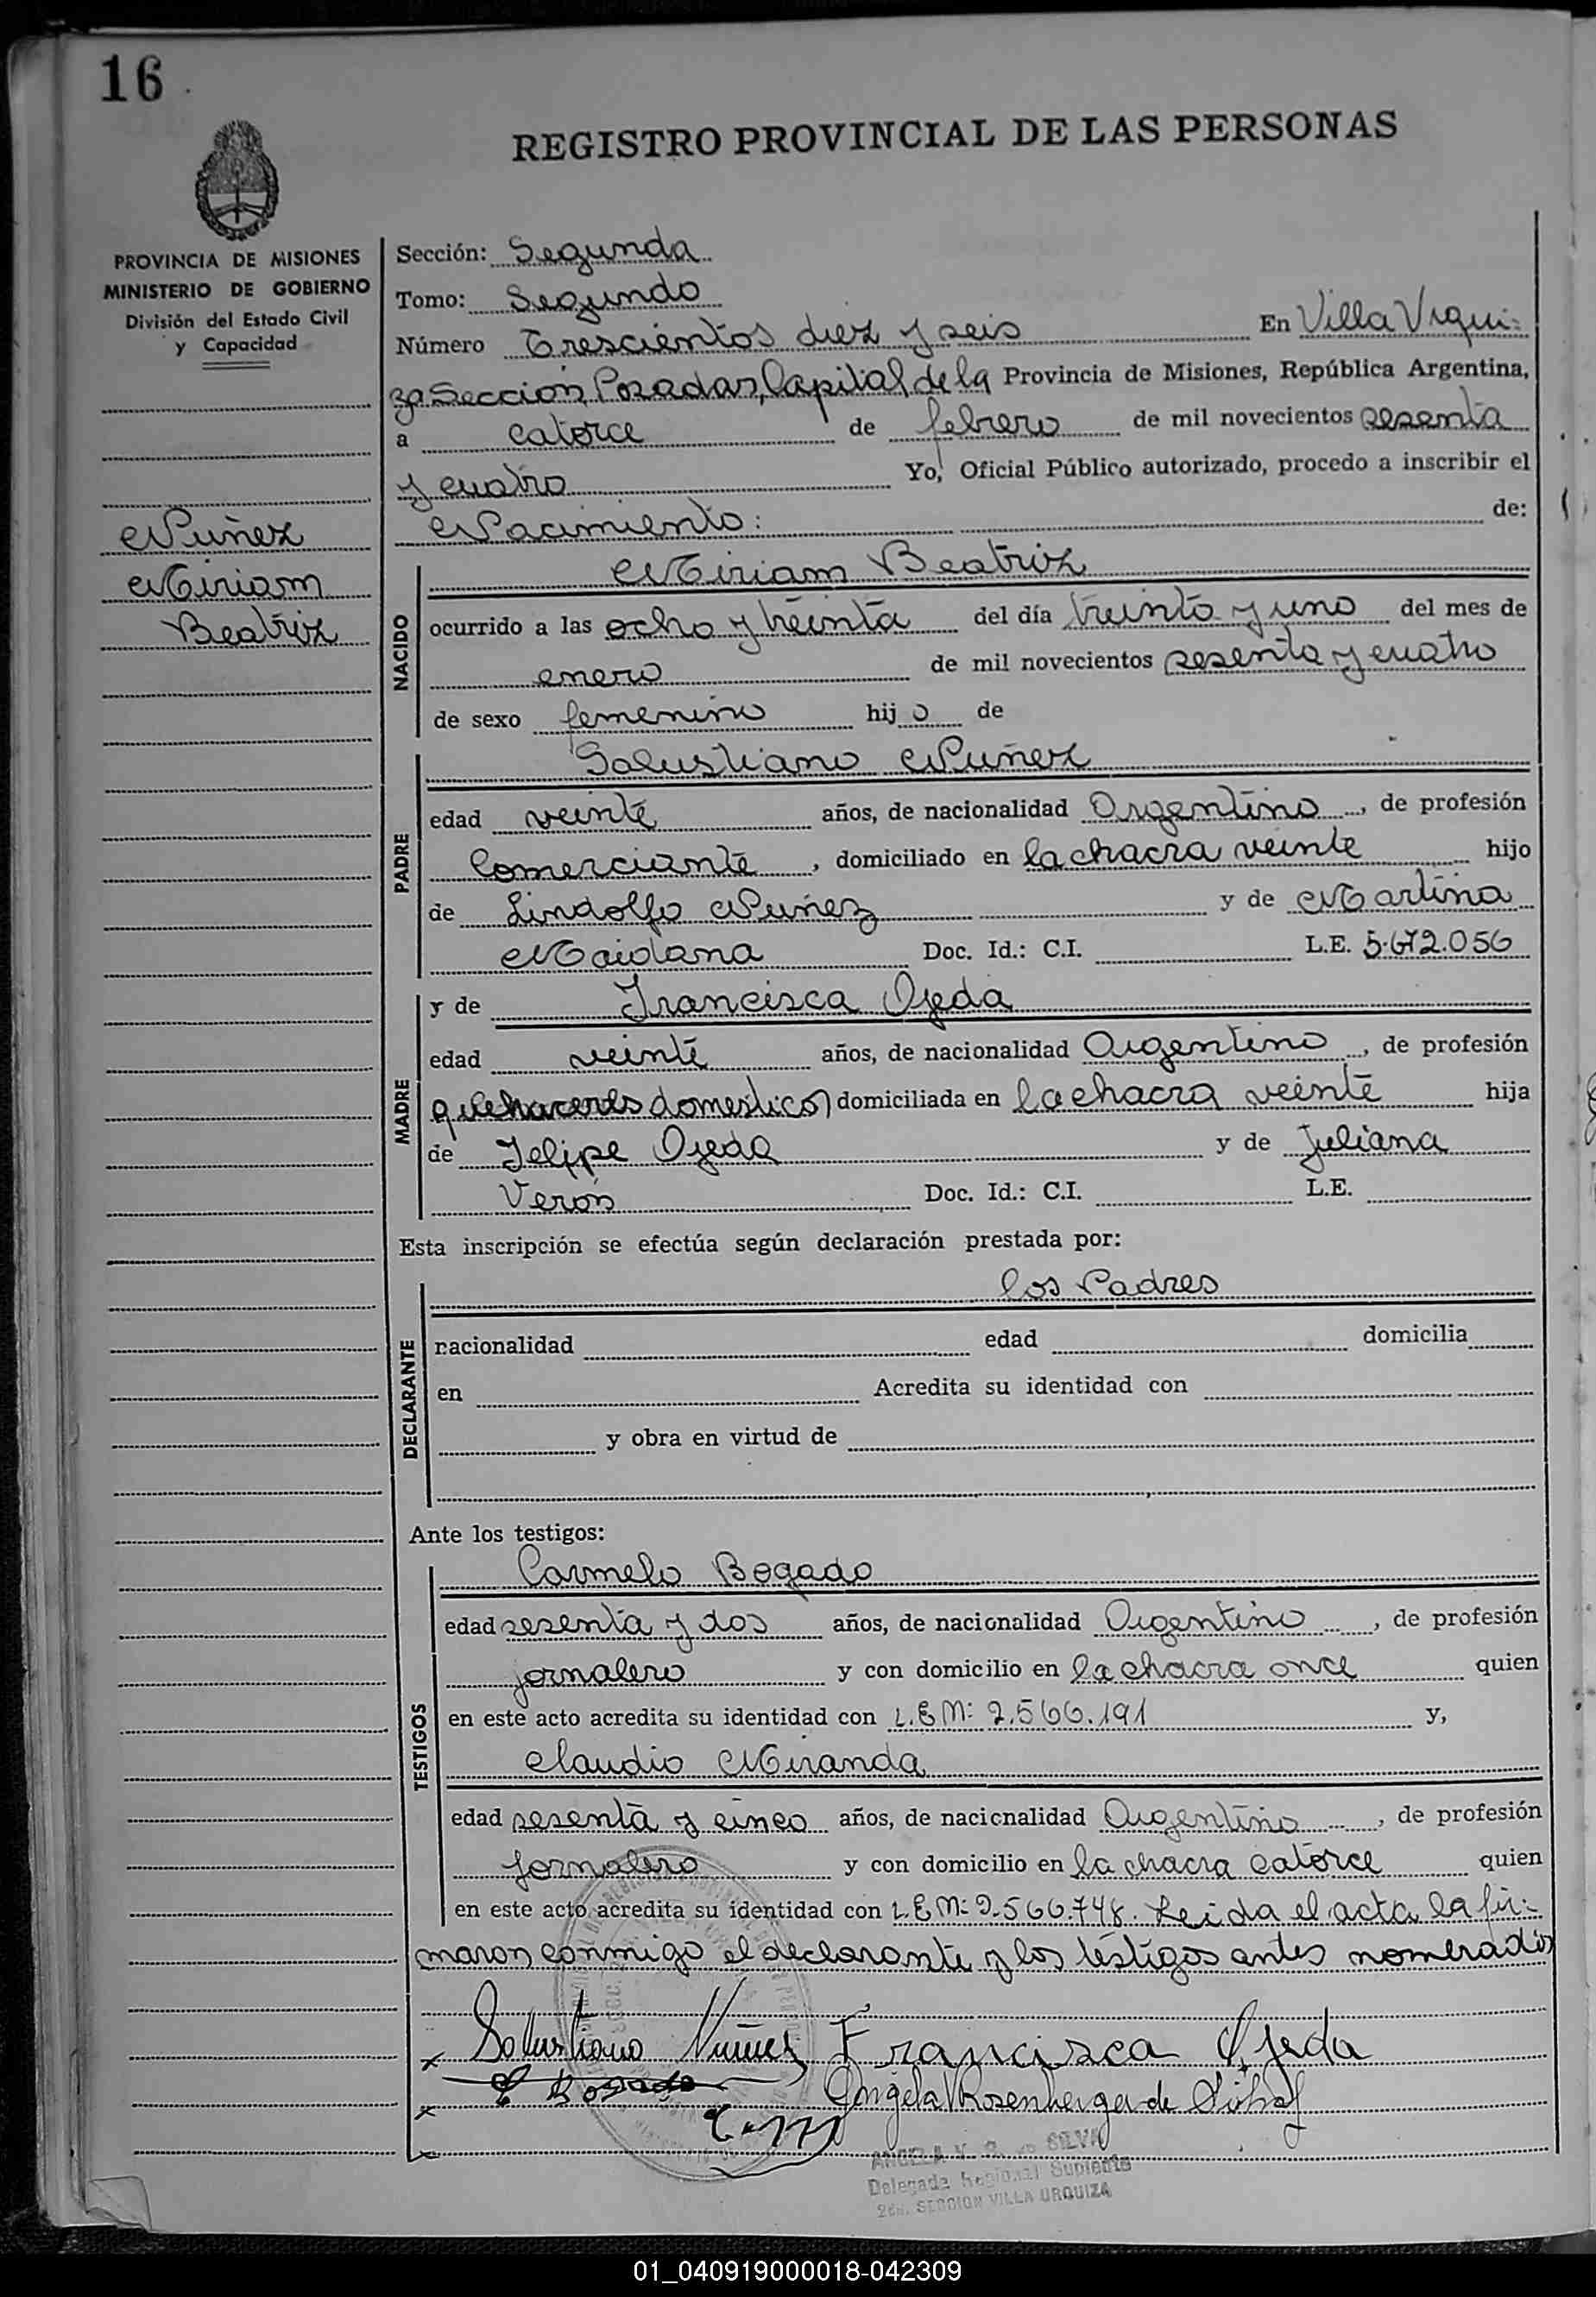 16
REGISTRO PROVINCIAL DE LAS PERSONAS
PROVINCIA DE MISIONES
MINISTERIO DE GOBIERNO
División del Estado Civil
y Capacidad
Nuñez
Miriam
Beatriz
Sección: Segunda
Tomo: Segundo
Número Trescientos diez y seis En Villa Urqui-
za Sección, Posadas, Capital de la Provincia de Misiones, República Argentina,
a catorce de febrero de mil novecientos sesenta
y cuatro Yo, Oficial Público autorizado, procedo a inscribir el
Nacimiento: de:
NACIDO
Miriam Beatriz
ocurrido a las ocho y treinta del día treinta y uno del mes de
enero de mil novecientos sesenta y cuatro
de sexo femenino hijo de
PADRE
Salustiano Nuñez
edad veinte años, de nacionalidad Argentino, de profesión
Comerciante, domiciliado en la chacra veinte hijo
de Lindolfo Nuñez y de Martina
Maidana Doc. Id.: C.I. L.E. 5.672.056
MADRE
y de Francisca Ojeda
edad veinte años, de nacionalidad Argentino, de profesión
domesticos domiciliada en la chacra veinte hija
de Felipe Ojeda y de Juliana
Verón Doc. Id.: C.I. L.E.
Esta inscripción se efectúa según declaración prestada por:
DECLARANTE
los Padres
nacionalidad edad domicilia
en Acredita su identidad con
y obra en virtud de
Ante los testigos:
TESTIGOS
Carmelo Bogado
edad sesenta y dos años, de nacionalidad Argentino, de profesión
jornalero y con domicilio en la chacra once quien
en este acto acredita su identidad con L.E M: 2.566.191 y,
Claudio Miranda
edad sesenta y cinco años, de nacionalidad Argentino, de profesión
Jornalero y con domicilio en la chacra catorce quien
en este acto acredita su identidad con L.E M: 2.566.748. Leida el acta la fir-
maron conmigo el declarante y los testigos antes nomerados
x Salustiano Nuñez Francisca Ojeda
x Bogado Angela Rosenberger de
x
ANGELA V. SILVA
Delegada Regional Suplente
2da. SECCION VILLA URQUIZA
01_040919000018-042309